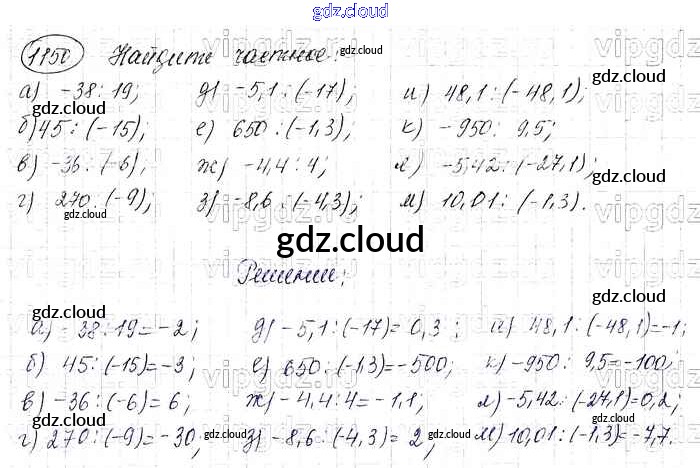 gdz.cloud
1150 Найдите частное:
а) -38:19; д) -5,1:(-17); и) 48,1:(-48,1);
б) 45:(-15); е) 650:(-1,3); к) -950:9,5;
в) -36:(-6); ж) -4,4:4; л) -5,42:(-27,1);
г) 270:(-9); з) -8,6:(-4,3); м) 10,01:(-1,3).
gdz.cloud
Решение;
а) -38:19=-2; д) -5,1:(-17)=0,3; и) 48,1:(-48,1)=-1;
б) 45:(-15)=-3; е) 650:(-1,3)=-500; к) -950:9,5=-100;
в) -36:(-6)=6; ж) -4,4:4=-1,1; л) -5,42:(-27,1)=0,2;
г) 270:(-9)=-30; з) -8,6:(-4,3)=2; м) 10,01:(-1,3)=-7,7.